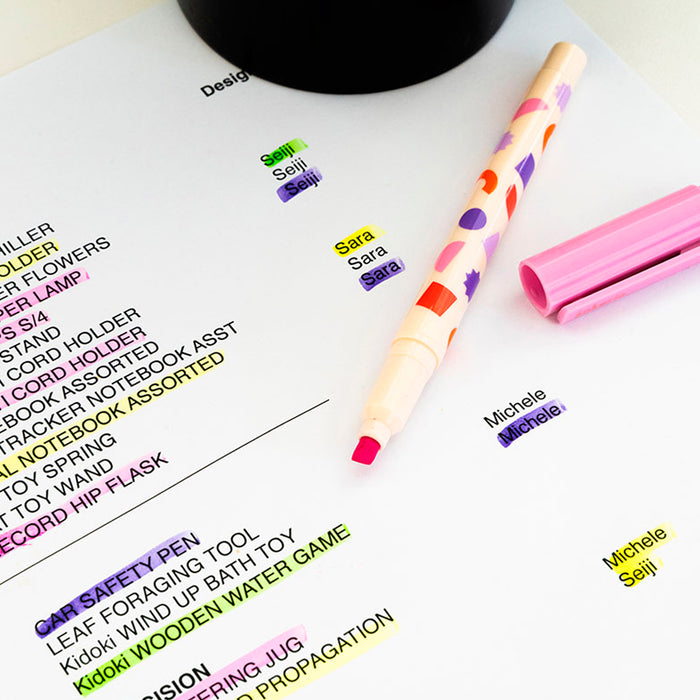 Desig
Seiji
Seiji
Seiji
Sara
Sara
Sara
HILLER
OLDER
ER FLOWERS
PER LAMP
OS S/4
STAND
I CORD HOLDER
I CORD HOLDER
EBOOK ASSORTED
TRACKER NOTEBOOK ASST
AL NOTEBOOK ASSORTED
TOY SPRING
T TOY WAND
RECORD HIP FLASK
Michele
Michele
Michele
Seiji
CAR SAFETY PEN
LEAF FORAGING TOOL
Kidoki WIND UP BATH TOY
Kidoki WOODEN WATER GAME
CISION
TERING JUG
D PROPAGATION